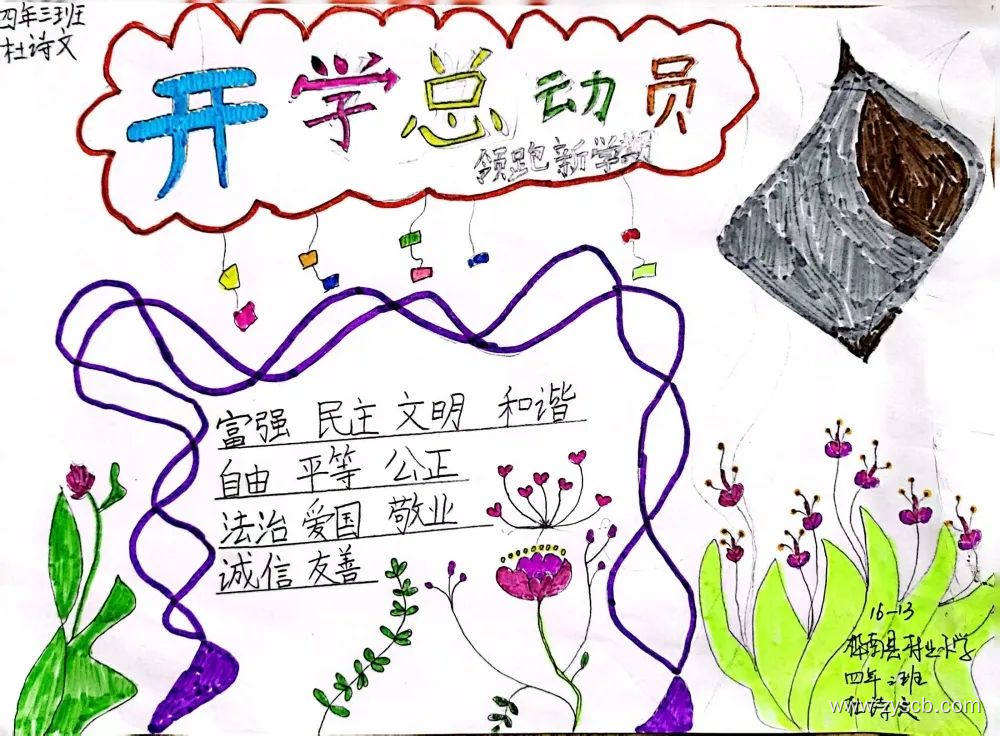 四年三班
杜诗文
开学总动员
领跑新学期
富强 民主 文明 和谐
自由 平等 公正
法治 爱国 敬业
诚信 友善
16-13
桦南县林业小学
四年三班
杜诗文
www.zyscb.com